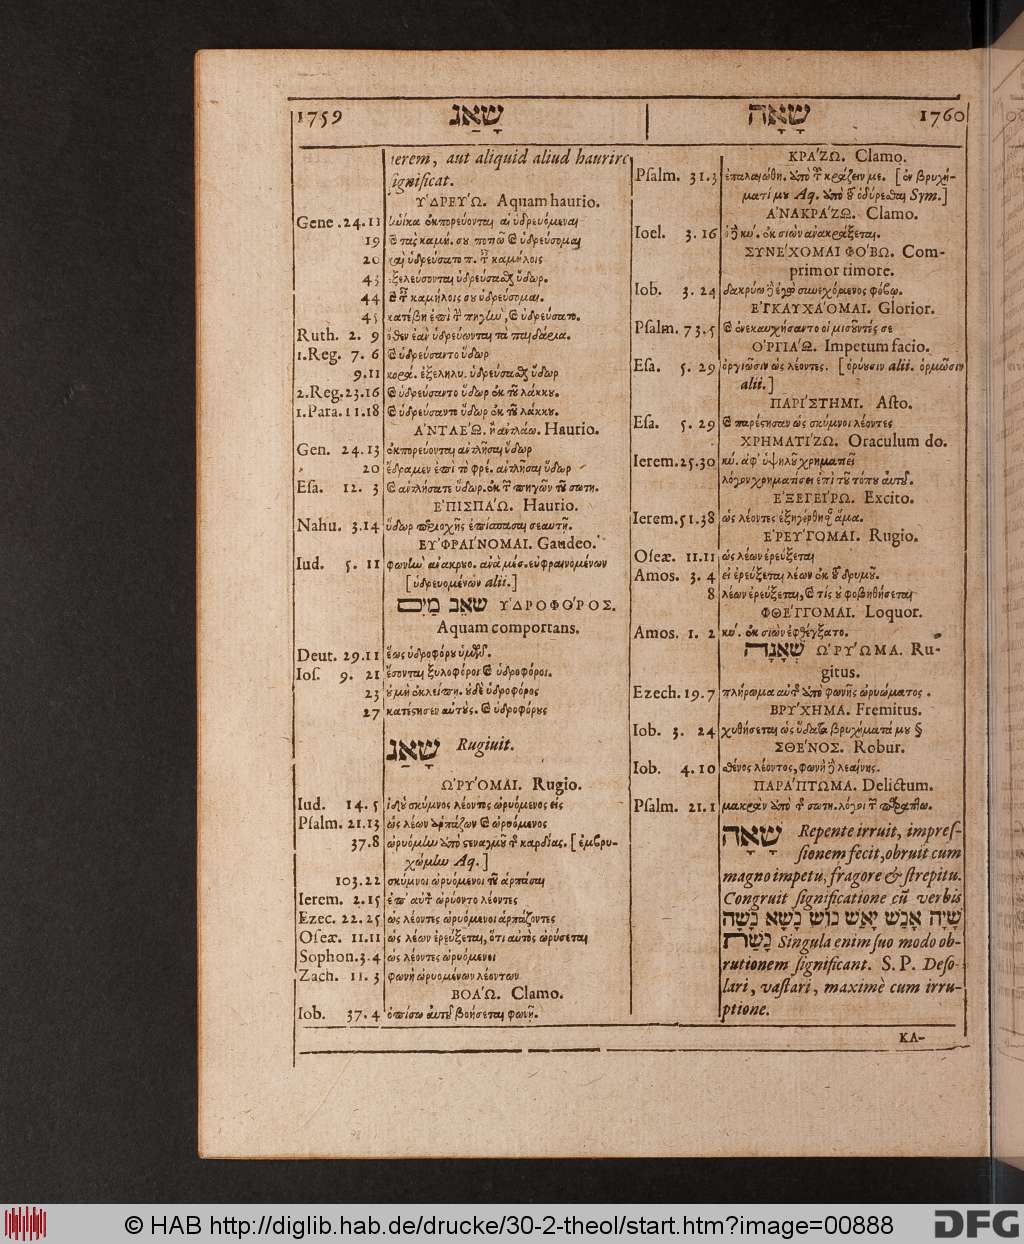 1759 שָׁאַג
שָׁאָה 1760
ferem, aut aliquid aliud haurire
significat.
ΥΔΡΕΥΏ. Aquam haurio.
Gene. 24. 11 ἡνίκα ἐκπορεύονται αἱ ὑδρευόμεναι
19 ϗ ταῖς καμή. σου ποτιῶ ϗ ὑδρεύσομαι
20 καὶ ὑδρεύσατο π. τ͂ καμήλοις
43 ἐξελεύσονται ὑδρεύσασθαι ὕδωρ.
44 ϗ τ͂ καμήλοις σου ὑδρεύσομαι.
45 κατέβη ἐπὶ τ͂ πηγὴν, ϗ ὑδρεύσατο.
Ruth. 2. 9 ὅθεν ἐὰν ὑδρεύωνται τὰ παιδάρια.
1. Reg. 7. 6 ϗ ὑδρεύσαντο ὕδωρ
9. 11 κορά. ἐξεληλυ. ὑδρεύσασθαι ὕδωρ
2. Reg. 23. 16 ϗ ὑδρεύσαντο ὕδωρ ἐκ τοῦ λάκκου.
1. Para. 11. 18 ϗ ὑδρεύσαντο ὕδωρ ἐκ τοῦ λάκκου.
ἈΝΤΛΕΏ. ἢ ἀντλάω. Haurio.
Gen. 24. 13 ἐκπορεύονται ἀντλῆσαι ὕδωρ
20 ἔδραμεν ἐπὶ τὸ φρέ. ἀντλῆσαι ὕδωρ
Esa. 12. 3 ϗ ἀντλήσατε ὕδωρ. ἐκ τ͂ πηγῶν τοῦ σωτη.
ἘΠΙΣΠΆΩ. Haurio.
Nahu. 3. 14 ὕδωρ περιοχῆς ἐπίσπασαι σεαυτῇ.
ΕΥΦΡΑΊΝΟΜΑΙ. Gaudeo.
Iud. 5. 11 φωνὴν ἀνακρου. ἀνὰ μέσ. εὐφραινομένων
[ὑδρευομένων alii.]
שאב מים ΥΔΡΟΦΌΡΟΣ.
Aquam comportans.
Deut. 29. 11 ἕως ὑδροφόρου ὑμῶν.
Ios. 9. 21 ἔσονται ξυλοφόροι ϗ ὑδροφόροι.
23 οὐ μὴ ἐκλείπῃ. οὐδὲ ὑδροφόρος
27 κατέστησεν αὐτούς. ϗ ὑδροφόρους
שָׁאַג Rugiuit.
ΩΡΎΟΜΑΙ. Rugio.
Iud. 14. 5 ἰδοὺ σκύμνος λέοντος ὠρυόμενος εἰς
Psalm. 21. 13 ὡς λέων ἁρπάζων ϗ ὠρυόμενος
37. 8 ὠρυόμην ἀπὸ στεναγμοῦ τ͂ καρδίας. [ἐμβρυ-
χώμην Aq.]
103. 22 σκύμνοι ὠρυόμενοι τοῦ ἁρπάσαι
Ierem. 2. 15 ἐπ' αὐτ͂ ὠρύοντο λέοντες
Ezec. 22. 25 ὡς λέοντες ὠρυόμενοι ἁρπάζοντες
Oseæ. 11. 11 ὡς λέων ἐρεύξεται, ὅτι αὐτὸς ὠρύσεται
Sophon. 3. 4 ὡς λέοντες ὠρυόμενοι
Zach. 11. 3 φωνὴ ὠρυομένων λέοντων
ΒΟΆΩ. Clamo.
Iob. 37. 4 ὀπίσω αὐτοῦ βοήσεται φωνῇ.
ΚΡΆΖΩ. Clamo.
Psalm. 31. 3 ἐπαλαιώθη. ἀπὸ τ͂ κράζειν με. [ἐν βρυχή-
ματί μου Aq. ἀπὸ τοῦ ὀδύρεσθαι Sym.]
ἈΝΑΚΡΆΖΩ. Clamo.
Ioel. 3. 16 ὁ δὲ κύ. ἐκ σιὼν ἀνακράξεται.
ΣΥΝΈΧΟΜΑΙ ΦΌΒΩ. Com-
primor timore.
Iob. 3. 24 δακρύω δὲ ἐγὼ συνεχόμενος φόβῳ.
ἘΓΚΑΥΧΆΟΜΑΙ. Glorior.
Psalm. 73. 5 ϗ ἐνεκαυχήσαντο οἱ μισοῦντές σε
ὈΡΓΙΆΩ. Impetum facio.
Esa. 5. 29 ὀργιῶσιν ὡς λέοντες. [ὀρύουσιν alii. ὁρμῶσιν
alii.]
ΠΑΡΊΣΤΗΜΙ. Asto.
Esa. 5. 29 ϗ παρέστησαν ὡς σκύμνοι λέοντες
ΧΡΗΜΑΤΊΖΩ. Oraculum do.
Ierem. 25. 30 κύ. ἀφ' ὑψηλοῦ χρηματιεῖ
λόγον χρηματίσει ἐπὶ τοῦ τόπου αὐτοῦ.
ἘΞΕΓΕΊΡΩ. Excito.
Ierem. 51. 38 ὡς λέοντες ἐξηγέρθησ. ἅμα.
ἘΡΕΎΓΟΜΑΙ. Rugio.
Oseæ. 11. 11 ὡς λέων ἐρεύξεται
Amos. 3. 4 εἰ ἐρεύξεται λέων ἐκ τοῦ δρυμοῦ.
8 λέων ἐρεύξεται, ϗ τίς οὐ φοβηθήσεται
ΦΘΈΓΓΟΜΑΙ. Loquor.
Amos. 1. 2 κύ. ἐκ σιὼν ἐφθέγξατο.
שְׁאָגָה ὨΡΎΩΜΑ. Ru-
gitus.
Ezech. 19. 7 πλήρωμα αὐτ͂ ἀπὸ φωνῆς ὠρυώματος.
ΒΡΎΧΗΜΑ. Fremitus.
Iob. 3. 24 χυθήσεται ὡς ὕδατα βρυχήματά μου §
ΣΘΈΝΟΣ. Robur.
Iob. 4. 10 σθένος λέοντος, φωνὴ δὲ λεαίνης.
ΠΑΡΆΠΤΩΜΑ. Delictum.
Psalm. 21. 1 μακρὰν ἀπὸ τ͂ σωτη. λόγοι τ͂ παραπτω.
שָׁאָה Repente irruit, impres-
sionem fecit, obruit cum
magno impetu, fragore & strepitu.
Congruit significatione cū verbis
שָׁיָה אָנַשׁ יָאַשׁ נוּשׁ נָשָׁא נָשָׁה
נָשַׁת Singula enim suo modo ob-
rutionem significant. S. P. Deso-
lari, vastari, maximè cum irru-
ptione.
ΚΛ-
© HAB http://diglib.hab.de/drucke/30-2-theol/start.htm?image=00888
DFG